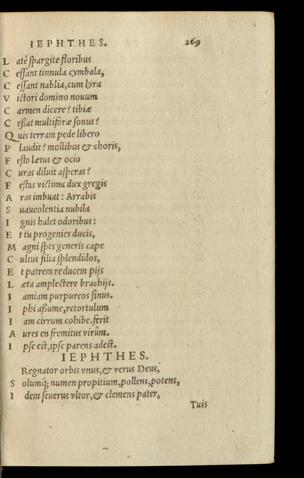 IEPHTHES. 269
L atè spargite floribus
C essant tinnula cymbala,
C essant nablia, cum lyra
V ictori domino nouum
C armen dicere? tibiæ
C essat multiforæ sonus?
Q uis terram pede libero
P laudit? mollibus & choris,
F esto lætus & ocio
C uras diluit asperas?
F estas victima dux gregis
A ras imbuat: Arrabis
S uaueolentia nubila
I gnis halet odoribus:
E t tu progenies ducis,
M agni spes generis cape
C ultus filia splendidos,
E t patrem reducem pijs
L æta amplectere brachijs.
I amiam purpureos sinus.
I phi assume, retortulum
I am cirrum cohibe. ferit
A ures en fremitus virûm.
I pse est, ipse parens adest.
IEPHTHES.
Regnator orbis vnus, & verus Deus,
S olumq; numen propitium, pollens, potens,
I dem seuerus vltor, & clemens pater,
Tuis